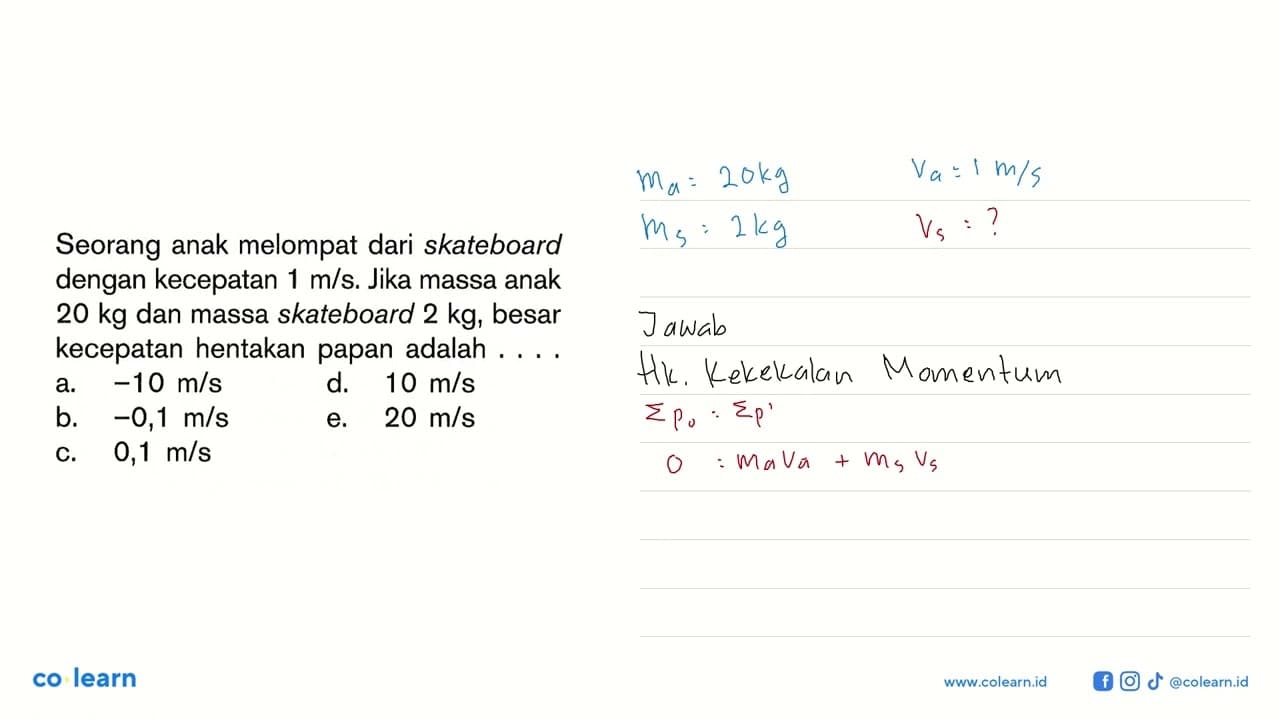 Seorang anak melompat dari skateboard
dengan kecepatan 1 m/s. Jika massa anak
20 kg dan massa skateboard 2 kg, besar
kecepatan hentakan papan adalah . . . .
a. −10 m/s d. 10 m/s
b. −0,1 m/s e. 20 m/s
c. 0,1 m/s
ma = 20kg va = 1 m/s
ms = 2kg vs = ?
Jawab
Hk. Kekekalan Momentum
Σpo = Σp'
0 = ma va + ms vs
co learn
www.colearn.id @colearn.id